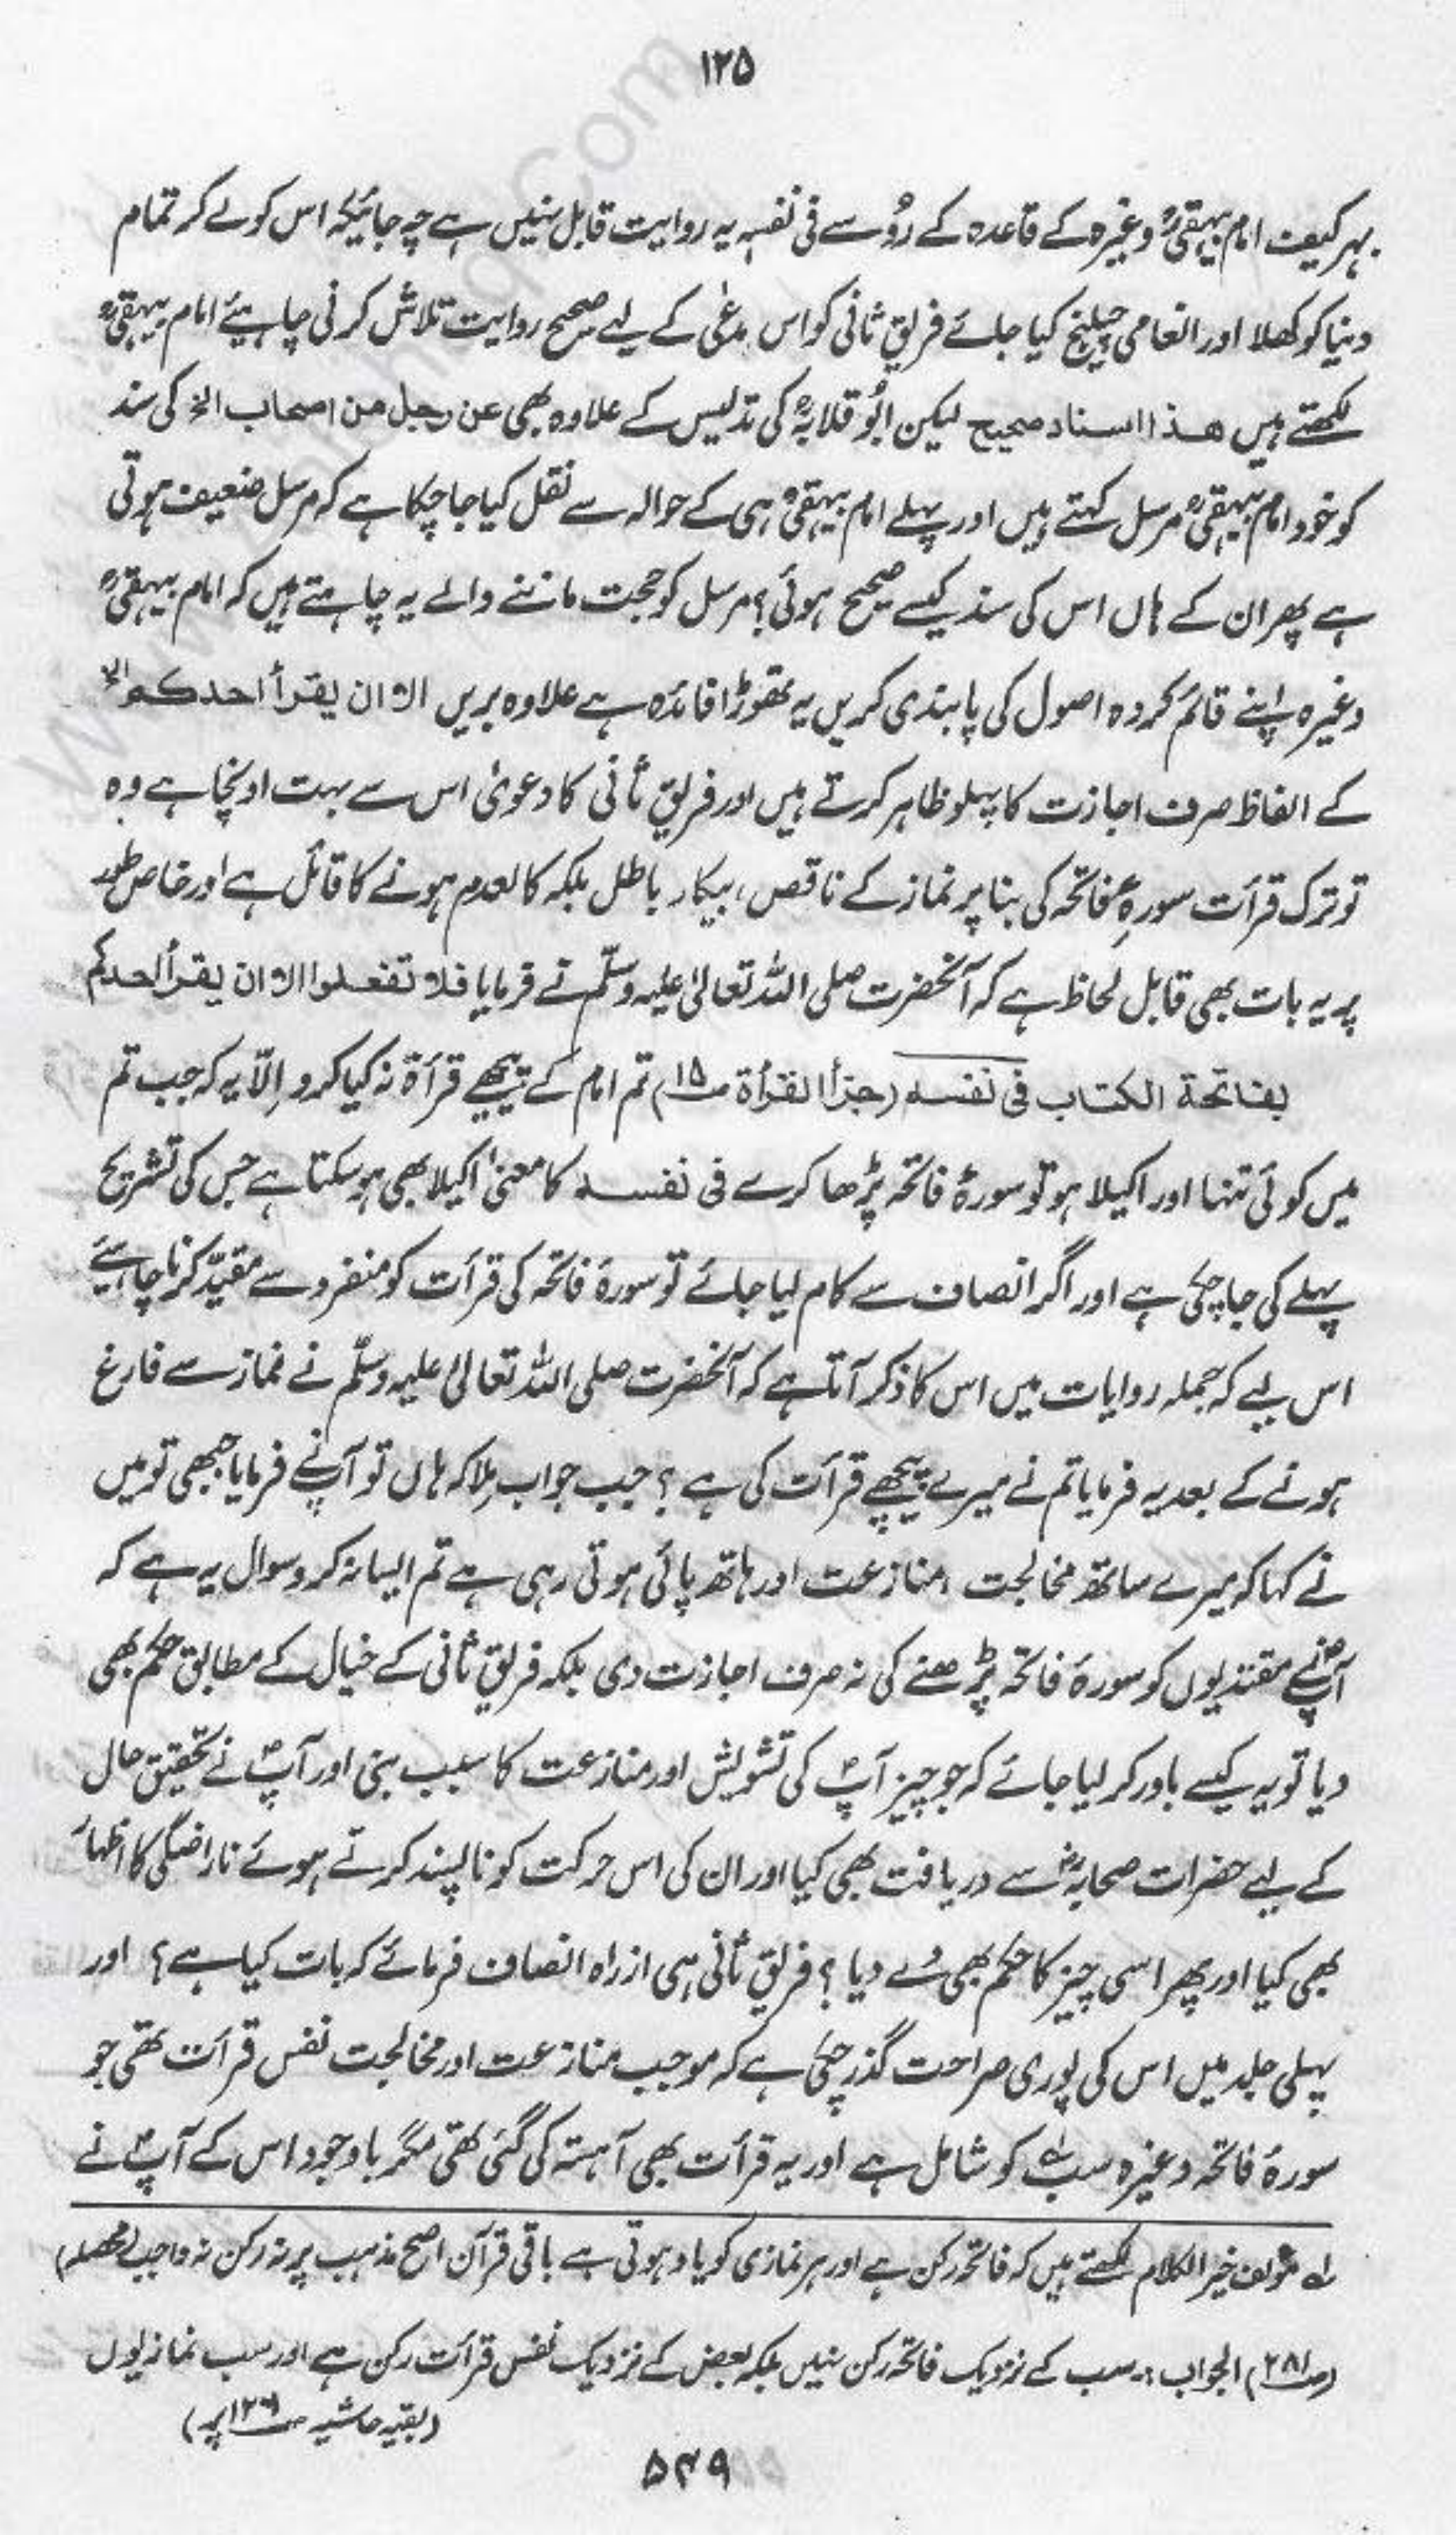 ۱۲۵
بہر کیف امام بیہقیؒ وغیرہ کے قاعدہ کے رُو سے فی نفسہٖ یہ روایت قابل نہیں ہے چہ جائیکہ اس کو لے کر تمام
دنیا کو کھلا اور انعامی چیلنج کیا جائے فریقِ ثانی کو اس مدعٰی کے لیے صحیح روایت تلاش کرنی چاہیئے امام بیہقیؒ
لکھتے ہیں ھذا اسناد صحیح لیکن ابُو قلابہؒ کی تدلیس کے علاوہ بھی عن رجل من اصحاب الخ کی سند
کو خود امام بیہقیؒ مرسل کہتے ہیں اور پہلے امام بیہقیؒ ہی کے حوالہ سے نقل کیا جا چکا ہے کہ مرسل ضعیف ہوتی
ہے پھر ان کے ہاں اس کی سند کیسے صحیح ہوئی؟ مرسل کو حجت ماننے والے یہ چاہتے ہیں کہ امام بیہقیؒ
وغیرہ اپنے قائم کردہ اصول کی پابندی کریں یہ تھوڑا فائدہ ہے علاوہ بریں الا ان یقرأ احدکم الخ
کے الفاظ صرف اجازت کا پہلو ظاہر کرتے ہیں اور فریقِ ثانی کا دعویٰ اس سے بہت اونچا ہے وہ
تو ترک قرأت سورہِ فاتحہ کی بنا پر نماز کے ناقص، بیکار باطل بلکہ کالعدم ہونے کا قائل ہے اور خاص طور
پر یہ بات بھی قابل لحاظ ہے کہ آنحضرت صلی اللہ تعالیٰ علیہ وسلّم نے فرمایا فلا تفعلوا الا ان یقرأ احدکم
بفاتحۃ الکتاب فی نفسہ (جزأ القرأۃ ص۱۵) تم امام کے پیچھے قرأۃ نہ کیا کرو اِلّا یہ کہ جب تم
میں کوئی تنہا اور اکیلا ہو تو سورۂ فاتحہ پڑھا کرے فی نفسہ کا معنیٰ اکیلا بھی ہو سکتا ہے جس کی تشریح
پہلے کی جا چکی ہے اور اگر انصاف سے کام لیا جائے تو سورۂ فاتحہ کی قرأت کو منفرد سے مقیّد کرنا چاہیئے
اس لیے کہ جملہ روایات میں اس کا ذکر آتا ہے کہ آنحضرت صلی اللہ تعالیٰ علیہ وسلّم نے نماز سے فارغ
ہونے کے بعد یہ فرمایا تم نے میرے پیچھے قرأت کی ہے؟ جب جواب مِلا کہ ہاں تو آپ نے فرمایا جبھی تو میں
نے کہا کہ میرے ساتھ مخالجت، منازعت اور ہاتھا پائی ہوتی رہی ہے تم ایسا نہ کرو سوال یہ ہے کہ
آپؐ نے مقتدیوں کو سورۂ فاتحہ پڑھنے کی نہ صرف اجازت دی بلکہ فریقِ ثانی کے خیال کے مطابق حکم بھی
دیا تو یہ کیسے باور کر لیا جائے کہ جو چیز آپؐ کی تشویش اور منازعت کا سبب بنی اور آپؐ نے تحقیق حال
کے لیے حضرات صحابہؓ سے دریافت بھی کیا اور ان کی اس حرکت کو ناپسند کرتے ہوئے ناراضگی کا اظہار
بھی کیا اور پھر اسی چیز کا حکم بھی دے دیا؟ فریقِ ثانی ہی از راہ انصاف فرمائے کہ بات کیا ہے؟ اور
پہلی جلد میں اس کی پوری صراحت گذر چکی ہے کہ موجب منازعت اور مخالجت نفس قرأت تھی جو
سورۂ فاتحہ وغیرہ سب کو شامل ہے اور یہ قرأت بھی آہستہ کی گئی تھی مگر باوجود اس کے آپؐ نے
لے مؤلف خیر الکلام لکھتے ہیں کہ فاتحہ رکن ہے اور ہر نمازی کو یاد ہوتی ہے باقی قرآن اصح مذہب پر نہ رکن نہ واجب (محصلہ)
(ص۲۸۱) الجواب:۔ سب کے نزدیک فاتحہ رکن نہیں بلکہ بعض کے نزدیک نفس قرأت رکن ہے اور سب نمازیوں
(بقیہ حاشیہ ص۱۲۶ پر)
۵۴۹